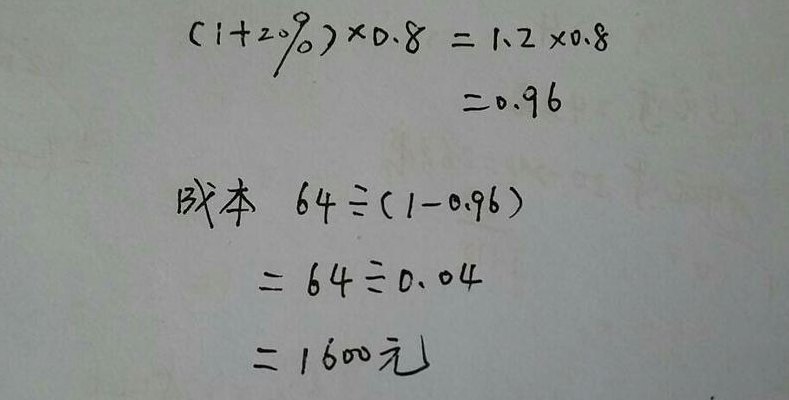 (1+20%)×0.8 = 1.2×0.8
=0.96
成本 64÷(1-0.96)
= 64÷0.04
= 1600元